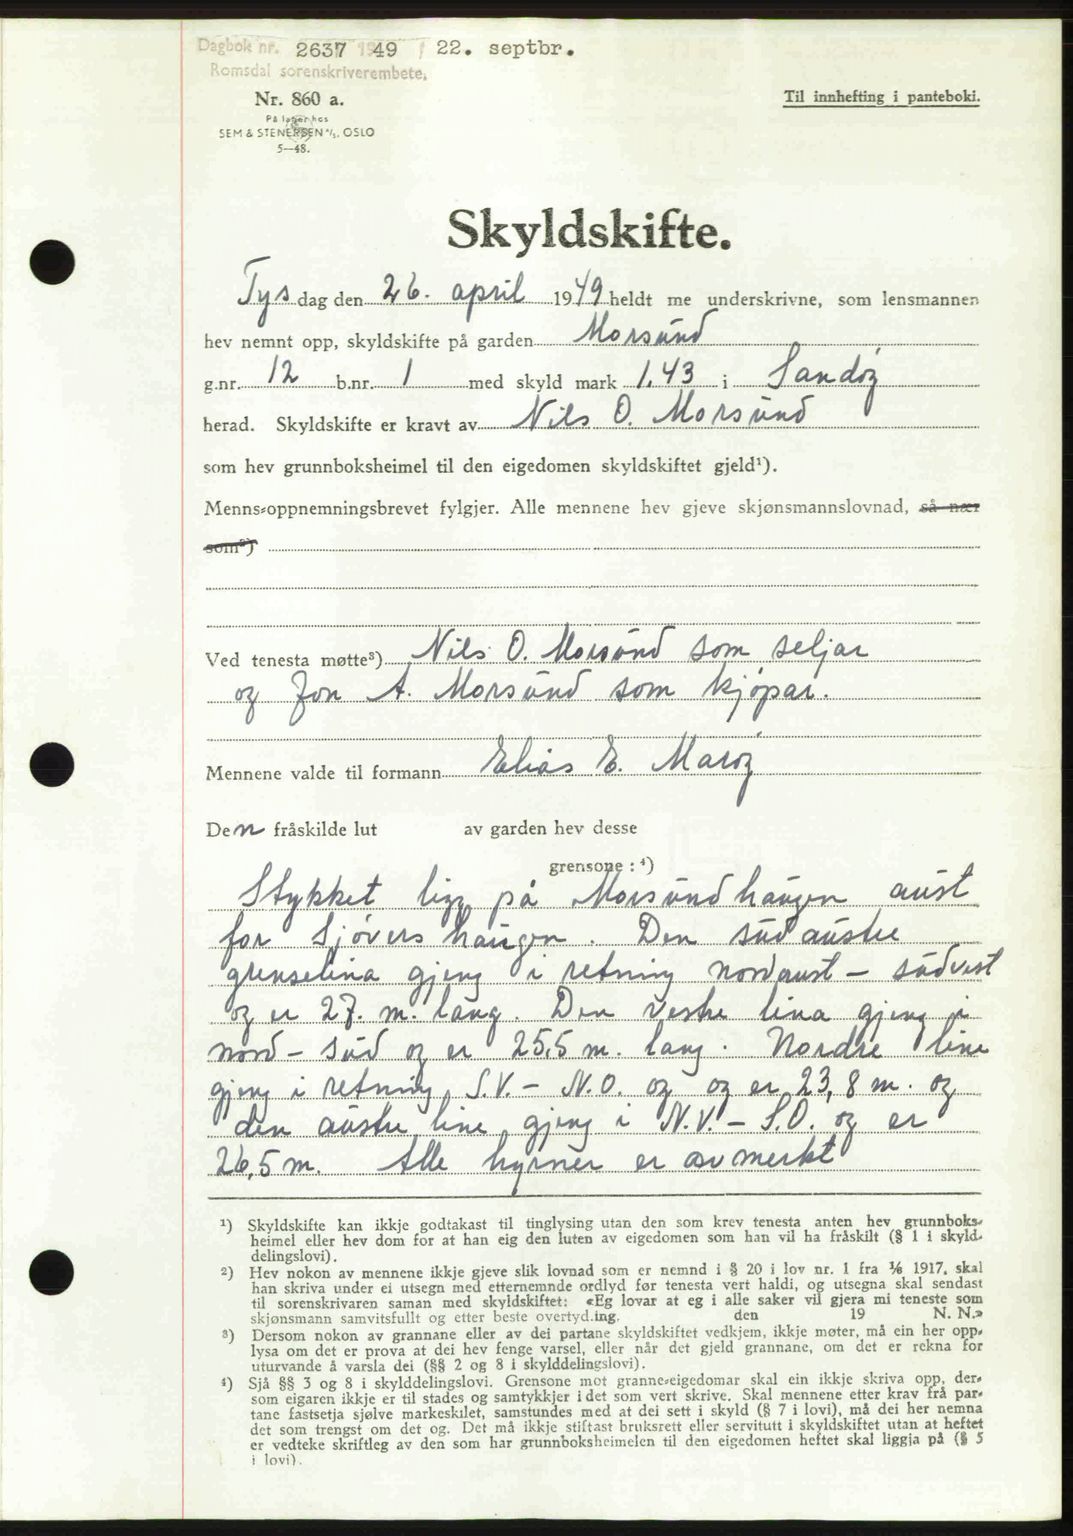 Dagbok nr. 2637 1949 / 22. septbr.
Romsdal sorenskriverembete,
Nr. 860 a.
På lager hos
SEM & STENERSEN A/S. OSLO
5—48.
Til innhefting i panteboki.
Skyldskifte.
Tysdag den 26. april 1949 heldt me underskrivne, som lensmannen
hev nemnt opp, skyldskifte på garden Morsund
g.nr. 12 b.nr. 1 med skyld mark 1,43 i Sandøy
herad. Skyldskifte er kravt av Nils O. Morsund
som hev grunnboksheimel til den eigedomen skyldskiftet gjeld¹).
Menns-oppnemningsbrevet fylgjer. Alle mennene hev gjeve skjønsmannslovnad, så nær
som²)
Ved tenesta møtte³) Nils O. Morsund som seljar
og Jon A. Morsund som kjøpar.
Mennene valde til formann Elias E. Marøy
Den fråskilde lut av garden hev desse
grensone : ⁴)
Stykket ligg på Morsundhaugen aust
for Sjøvershaugen. Den sudaustre
grenselina gjeng i retning nordaust – sudvest
og er 27. m. lang. Den vestre lina gjeng i
nord – sud og er 25,5 m. lang. Nordre line
gjeng i retning S.V. – N.O. og og er 23,8 m. og
den austre line gjeng i N.V. – S.O. og er
26,5 m. Alle hyrner er avmerkt
¹) Skyldskifte kan ikkje godtakast til tinglysing utan den som krev tenesta anten hev grunnboks-
heimel eller hev dom for at han eig den luten av eigedomen som han vil ha fråskilt (§ 1 i skyld-
delingslovi).
²) Hev nokon av mennene ikkje gjeve slik lovnad som er nemnd i § 20 i lov nr. 1 fra ⅙ 1917, skal
han skriva under ei utsegn med etternemnde ordlyd før tenesta vert haldi, og utsegna skal sendast
til sorenskrivaren saman med skyldskiftet: «Eg lovar at eg i alle saker vil gjera mi teneste som
skjønsmann samvitsfullt og etter beste overtyd.ing. den 19 N. N.»
³) Dersom nokon av grannane eller av dei partane skyldskiftet vedkjem, ikkje møter, må ein her opp-
lysa om det er prova at dei hev fenge varsel, eller når det gjeld grannane, om det er rekna for
uturvande å varsla dei (§§ 2 og 8 i skylddelingslovi).
⁴) Sjå §§ 3 og 8 i skylddelingslovi. Grensone mot granne-eigedomar skal ein ikkje skriva opp, der-
som eigaren ikkje er til stades og samtykkjer i det som vert skrive. Skal mennene etter krav frå par-
tane fastsetja sjølve markeskilet, samstundes med at dei sett i skyld (§ 7 i lovi), må dei her nemna
det som trengst om det og. Det må ikkje stiftast bruksrett eller servitutt i skyldskiftet utan at heftet
er vedteke skriftleg av den som har grunnboksheimelen til den eigedomen heftet skal liggja på (§ 5
i lovi).